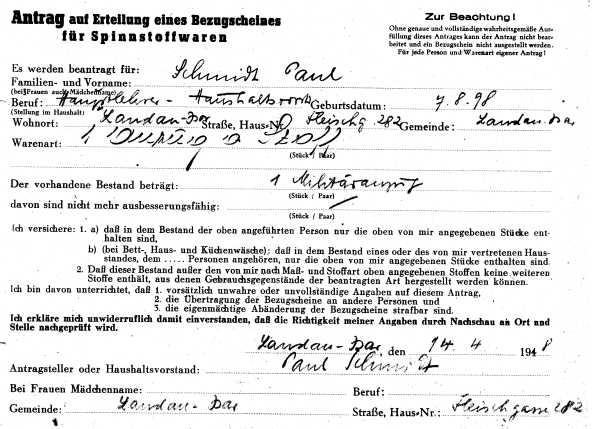 Antrag auf Erteilung eines Bezugscheines
für Spinnstoffwaren
Zur Beachtung!
Ohne genaue und vollständige wahrheitsgemäße Aus-
füllung dieses Antrages kann der Antrag nicht bear-
beitet und ein Bezugschein nicht ausgestellt werden.
Für jede Person und Warenart eigener Antrag!
Es werden beantragt für: Schmidt Paul
Familien- und Vorname:
(bei Frauen auch Mädchenname)
Beruf: Hauptlehrer - Haushaltsvorst Geburtsdatum: 7.8.98
(Stellung im Haushalt)
Wohnort: Landau-Isar Straße, Haus-N Fleischg. 282 Gemeinde: Landau-Isar
Warenart: 1
(Stück / Paar)
Der vorhandene Bestand beträgt: 1 Militäranzug
(Stück / Paar)
davon sind nicht mehr ausbesserungsfähig:
(Stück / Paar)
Ich versichere: 1. a) daß in dem Bestand der oben angeführten Person nur die oben von mir angegebenen Stücke ent-
halten sind,
b) (bei Bett-, Haus- und Küchenwäsche): daß in dem Bestand eines oder des von mir vertretenen Haus-
standes, dem ..... Personen angehören, nur die oben von mir angegebenen Stücke enthalten sind.
2. Daß dieser Bestand außer den von mir nach Maß- und Stoffart oben angegebenen Stoffen keine weiteren
Stoffe enthält, aus denen Gebrauchsgegenstände der beantragten Art hergestellt werden können.
Ich bin davon unterrichtet, daß 1. vorsätzlich unwahre oder unvollständige Angaben auf diesem Antrag,
2. die Übertragung der Bezugscheine an andere Personen und
3. die eigenmächtige Abänderung der Bezugscheine strafbar sind.
Ich erkläre mich unwiderruflich damit einverstanden, daß die Richtigkeit meiner Angaben durch Nachschau an Ort und
Stelle nachgeprüft wird.
Landau-Isar, den 14. 4 1948
Antragsteller oder Haushaltsvorstand: Paul Schmidt
Bei Frauen Mädchenname: Beruf:
Gemeinde: Landau-Isar Straße, Haus-Nr.: Fleischgasse 282